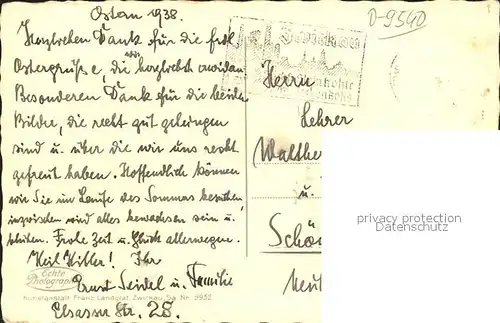 Ostern 1938.
D-9540
Herzlichen Dank für die frdl.
Zwickau
Ostergrüße, die herzlichst erwidern
Herrn
Besonderen Dank für die beiden
Lehrer
Bilder, die recht gut gelungen
Walther
sind u. über die wir uns recht
gefreut haben. Hoffentlich können
u.
wir Sie im Laufe des Sommers besuchen,
inzwischen wird alles bewachsen sein u.
privacy protection
Delcampe
blühen. Frohe Zeit u. Glück allerwegen.
Schö
Heil Hitler! Ihr
Echte
Photographie
Ernst Seidel u. Familie
Kunstanstalt Franz Landgraf, Zwickau, Sa. Nr. 9952
Elsasser Str. 28.